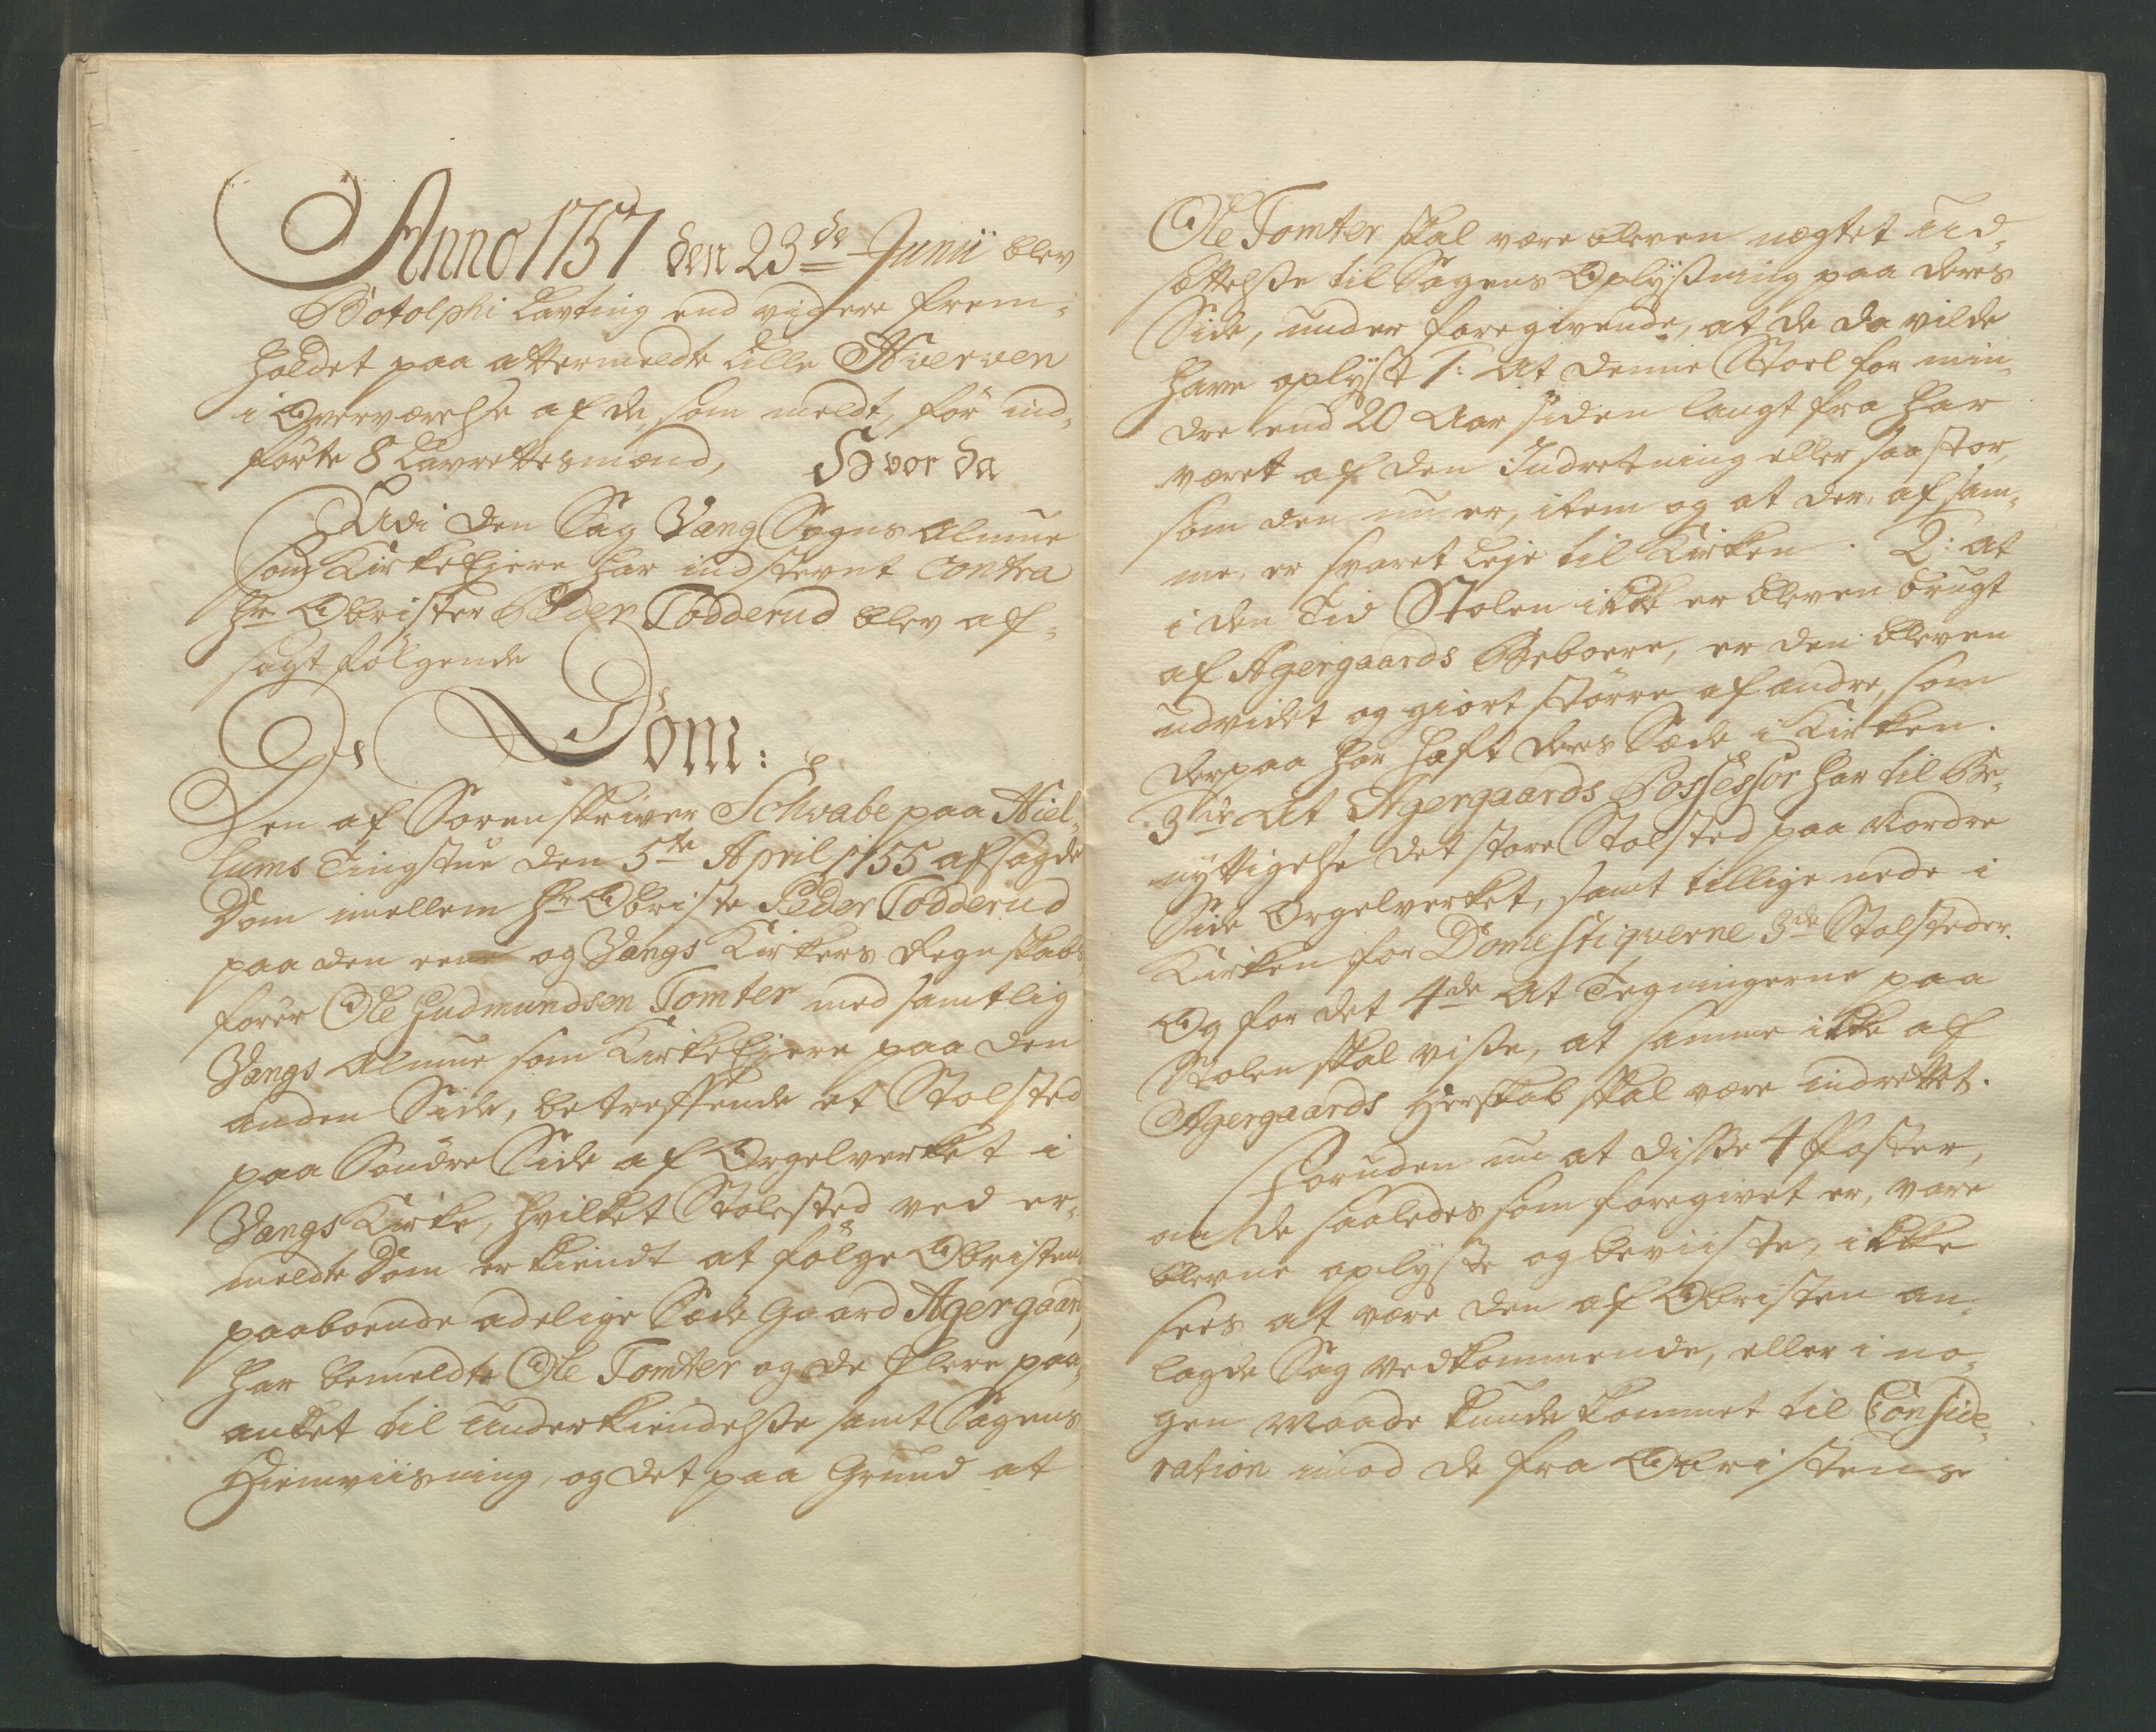 Anno 1757 den 23de Junii blev
Botolphi Lavting end videre frem-
holdet paa attermeldte Lille Hverven
i Overværelse af de, som meldt, før ind-
førte 8 Lavrettesmænd, Hvor da
Udi den Sag Vang Sogns Almue
som Kirke Ejere har indstevnt Contra
Hr Obrister Peder Todderud blev af-
sagt følgende
Dom:
Den af Sorenskriver Schwabe paa Hiel-
lums Tingstue den 5te April 1755 afsagde
Dom imellem Hr Obriste Peder Todderud
paa den eene og Vangs Kirkes Regnskabs-
fører Ole Gudmundsen Tomter med samtlig
Vangs Almue som Kirke Ejere paa den
anden Side, betreffende et Stolsted
paa Søndre Side af Orgelverket i
Vangs Kirke, hvilket Stolested ved er-
meldte Dom er kiendt at følge Obristens
paaboende adelige Sæde Gaard Agergaard,
har bemeldte Ole Tomter og de flere paa-
anket til Underkiendelsse samt Sagens
Hiemviisning, og det paa Grund at
Ole Tomter skal være bleven nægtet Ud-
sættelsse til Sagens Oplysning paa deres
Side, under foregivende, at de da vilde
have oplyst 1: At denne Stoel for min-
dre end 20 Aar siden langt fra har
været af den Indretning eller saa stor,
som den nu er, item og at der af sam-
me, er svaret Leje til Kirken. 2: at
i den Tid Stolen ikke er bleven brugt
af Agergaards Beboere, er den bleven
udvidet og giort større af andre, som
derpaa har haft deres Sæde i Kirken.
3die At Agergaards Possessor har til Be-
nyttigelse det store Stolsted paa Nordre
Side Orgelverket, samt tillige nede i
Kirken for Domestiqverne 3de Stolsteder.
Og for det 4de At Tegningerne paa
Stolen skal visse, at samme ikke af
Agergaards Herskab skal være indrettet.
Foruden nu at disse 4 Poster,
om de saaledes som foregivet er, vare
blevne oplyste og beviiste, ikke
sees at være den af Obristen an-
lagde Sag vedkommende, eller i no-
gen Maade kunde kommet til Conside-
ration imod de fra Obristens